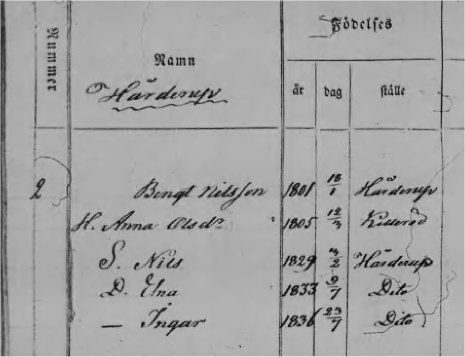 Nummer
Namn
Födelses
år dag ställe
Hårderup
2 Bengt Nilsson 1801 18/1 Hårderup
H. Anna Olsdr 1805 12/3 Killeröd
S. Nils 1829 3/2 Hårderup
D. Elna 1833 9/7 Dito
— Ingar 1836 23/7 Dito